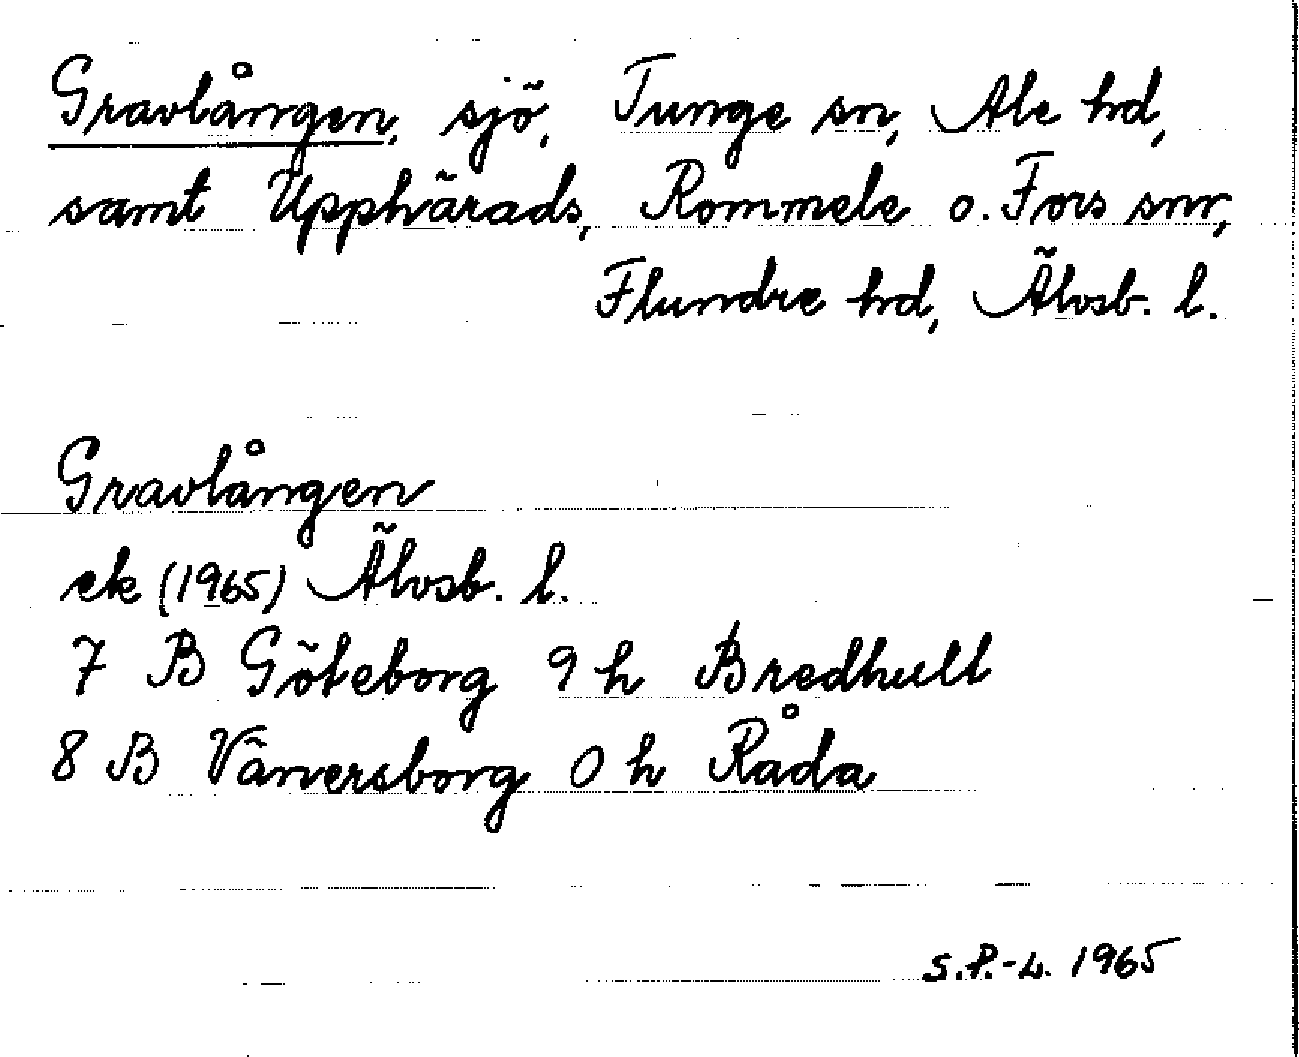 Gravlången, sjö, Tunge sn, Ale hd,
samt Upphärads, Rommele o. Fors snr,
Flundre hd, Älvsb. l.
Gravlången
ek (1965) Älvsb. l.
7 B Göteborg 9 h Bredhult
8 B Vänersborg 0 h Råda
S.P.-L. 1965